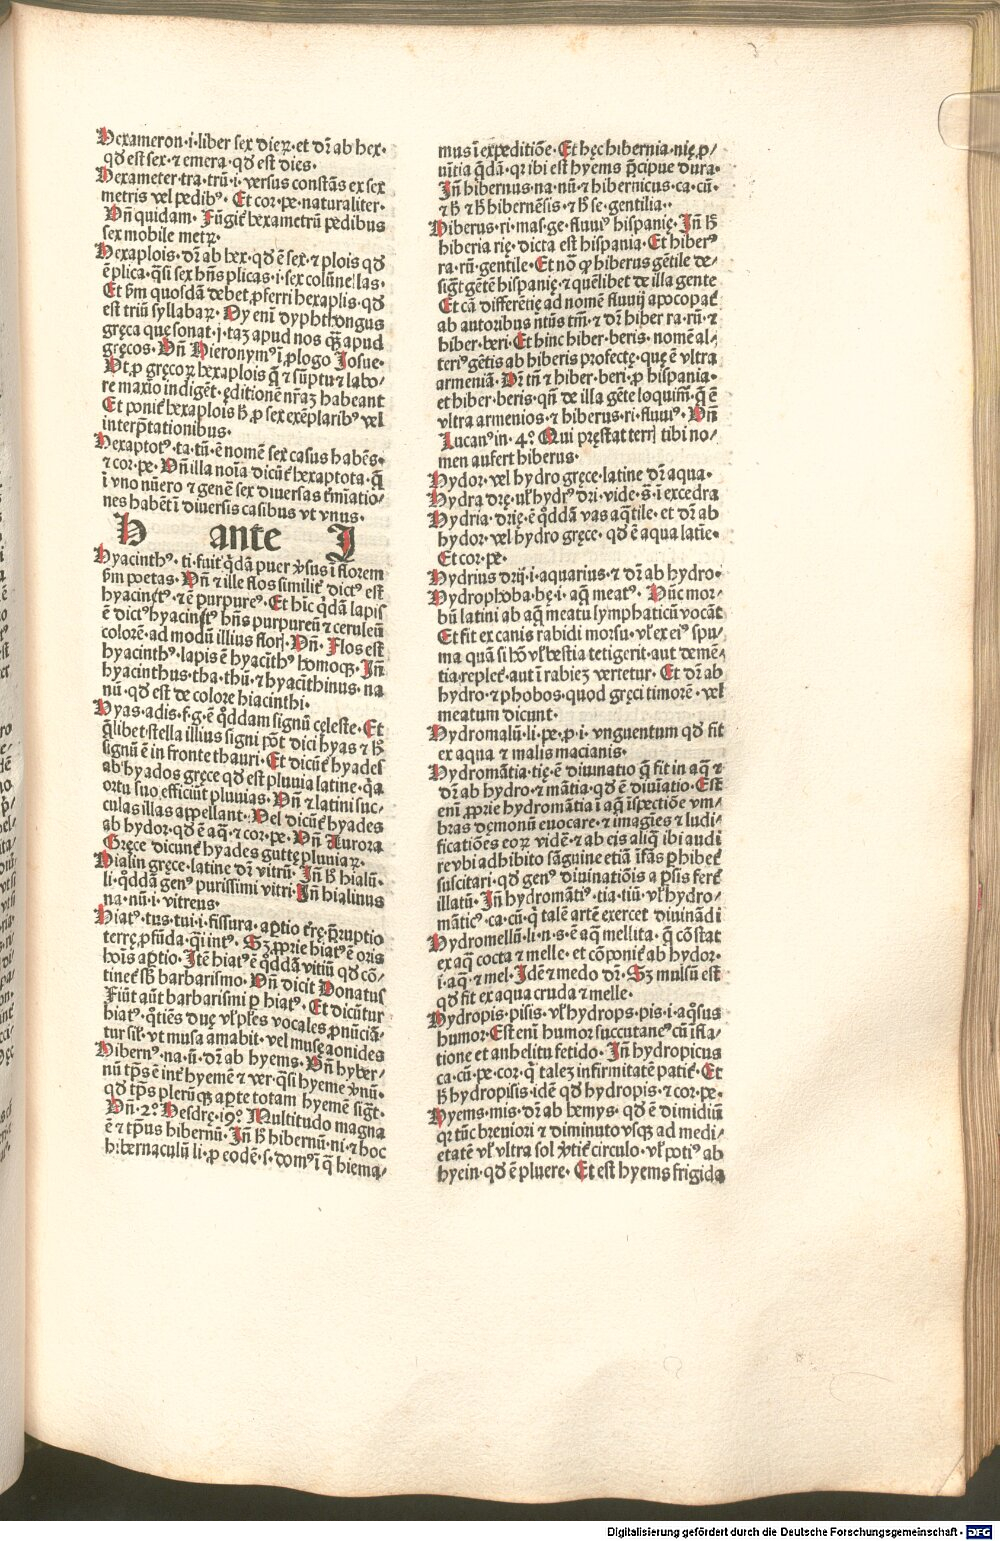 Hexameron·i·liber sex dieꝝ·et dr̄ ab hex·
qd̄ est sex·⁊ emera·qd̄ est dies·
Hexameter·tra·trū·i·versus constās ex sex
metris vel pedibꝰ· Et cor·pe·naturaliter·
Vn̄ quidam· Fūgiť hexametrū pedibus
sex mobile metꝝ·
Hexaplois· dr̄ ab hex·qd̄ ē sex·⁊ plois qd̄
ē plica·q̄si sex hn̄s plicas·i·sex colūnellas·
Et ẜm quosdā debet ꝓferri hexaplis·qd̄
est triū syllabaꝝ· Oy enī dyphthongus
gręca que sonat·j·taꝫ apud nos q̄ꝫ apud
gręcos· Vn̄ Hieronymꝰ ī ꝓlogo Josue·
Ut ꝓ gręcoꝝ hexaplois q̄ ⁊ sūptu ⁊ labo/
re maxīo indigēt·ęditionē nr̄aꝫ habeant
Et poniť hexaplois h̄ ꝓ sex exēplaribꝰ vel
interp̄tationibus·
Hexaptotꝰ·ta·tū·ē nomē sex casus habēs·
⁊ cor·pe· Vn̄ illa noīa dicūť hexaptota·q̄
ī vno nūero ⁊ genē sex diuersas t̄mīatio/
nes habēt ī diuersis casibus vt vnus·
H ante J
Hyacinthꝰ· ti·fuit q̄dā puer v̓sus ī florem
ẜm poetas· Vn̄ ⁊ ille flos similiť dictꝰ est
hyacinťꝰ·⁊ ē purpureꝰ· Et hic q̄dā lapis
ē dictꝰ hyacinťꝰ hn̄s purpureū ⁊ ceruleū
colorē·ad modū illius floꝝ· Vn̄· Flos est
hyacinthꝰ·lapis ē hyacīthꝰ homoqꝫ· Jn̄
hyacinthus·tha·thū·⁊ hyacinthinus·na
nū·qd̄ est de colore hiacinthi·
Hyas·adis·f·g·ē q̄ddam signū cęleste· Et
q̄libet stella illius signi pōt dici hyas ⁊ h̄
signū ē in fronte thauri· Et dicūť hyades
ab hyados gręce qd̄ est pluvia latine·q̄a
ortu suo efficiūt pluvias· Vn̄ ⁊ latini suc/
culas illas appellant· Vel dicūť hyades
ab hydor·qd̄ ē aq̄·⁊ cor·pe· Vn̄ Aurora
Gręce dicunť hyades guttę pluviaꝝ·
Hialin gręce·latine dr̄ vitrū· Jn̄ h̄ hialū·
li·q̄ddā genꝰ purissimi vitri· Jn̄ hialinus
na·nū·i·vitreus·
Hiatꝰ·tus·tui·i·fissura·aꝑtio t̄rę·p̄ruptio
terrę ꝓfūda·q̄i intꝰ· Sꝫ ꝓprie hiatꝰ ē oris
hoīs aꝑtio· Jtē hiatꝰ ē q̄ddā vitiū qd̄ cō/
tineť sb̄ barbarismo· Vn̄ dicit Donatus
Fiūt aūt barbarismi ꝑ hiatꝰ· Et dicūtur
hiatꝰ·q̄tiēs duę vľ ꝑles vocales ꝓnūciā/
tur siľ· vt musa amabit·vel musę aonides
Hibernꝰ·na·ū·dr̄ ab hyems· Vn̄ hyber/
nū tp̄s ē inť hyemē ⁊ ver·q̄si hyeme v̓nū·
qd̄ tp̄s plerūqꝫ aꝑte totam hyemē sigťt·
Vn̄·2ͦ· Hesdrę·19ͦ· Multitudo magna
ē ⁊ tp̄us hibernū· Jn̄ h̄ hibernū·ni·⁊ hoc
hibernaculū li·ꝓ eodē·s·domꝰ ī q̄ hiema/
mus ī expeditiōe· Et hęc hibernia·nię ꝓ/
uītia q̄dā·qr ibi est hyems p̄cipue dura·
Jn̄ hibernus·na·nū·⁊ hibernicus·ca·cū·
⁊ h̄ ⁊ h̄ hibernēsis·⁊ h̄ se·gentilia··
Hiberus·ri·mas·ge·fluviꝰ hispanię· Jn̄ h̄
hiberia rię·dicta est hispania· Et hiberꝰ
ra·rū·gentile· Et nō ꝙ hiberus gētile de/
sigťt gētē hispanię·⁊ quēlibet de illa gente
Et cā differētię ad nomē fluvij apocopať
ab autoribus ntūs tm̄·⁊ dr̄ hiber ra·rū·⁊
hiber·beri· Et hinc hiber·beris·nomē al/
teriꝰ gētis ab hiberis profectę·que ē vltra
armeniā· Dr̄ tn̄ ⁊ hiber·beri·ꝓ hispania·
et hiber·beris·qn̄ de illa gēte loquim̄·q̄ ē
vltra armenios·⁊ hiberus·ri·fluuiꝰ· Vn̄
Lucanꝰ in·4ͦ· Qui pręstat terris tibi no/
men aufert hiberus·
Hydor·vel hydro gręce·latine dr̄ aqua·
Hydra drę·vľ hydrꝰ dri·vide·s̄·i excedra
Hydria·drię·ē q̄ddā vas aq̄tile·et dr̄ ab
hydor·vel hydro gręce·qd̄ ē aqua latīe·
Et cor·pe·
Hydrius drij·i·aquarius·⁊ dr̄ ab hydro·
Hydrophoba·bę·i·aq̄ meatꝰ· Hūc mor/
bū latini ab aq̄ meatu lymphaticū vocāt
Et fit ex canis rabidi morsu·vľ ex eiꝰ spu/
ma quā si hō vľ bestia tetigerit·aut demē/
tia repleť·aut ī rabieꝫ vertetur· Et dr̄ ab
hydro·⁊ phobos·quod gręci timorē·vel
meatum dicunt·
Hydromalū·li·pe·p·i·vnguentum qd̄ fit
ex aqua ⁊ malis macianis·
Hydromātia·tię·ē diuinatio q̄ fit in aq̄ ⁊
dr̄ ab hydro·⁊ mātia·qd̄ ē diuīatio· Est
enī ꝓprie hydromātia ī aq̄ īspectiōe vm/
bras demonū euocare·⁊ imagīes ⁊ ludi/
ficatiōes eoꝝ vidē·⁊ ab eis aliq̄ ibi audi
re vbi adhibito sāguine etiā īfas ꝑhibeť
suscitari·qd̄ genꝰ diuinatiōis a ꝑsis ferť
illatū· Jn̄ hydromātiꝰ·tia·tiū·vľ hydro/
māticꝰ·ca·cū·q̄ talē artē exercet diuināđi
Hydromellū·li·n·s·ē aq̄ mellita·q̄ cōstat
ex aq̄ cocta ⁊ melle·et cōponiť ab hydor·
i·aq̄·⁊ mel· Jdē ⁊ medo dr̄· Sꝫ mulsū est
qd̄ fit ex aqua cruda ⁊ melle·
Hydropis·pisis·vľ hydrops·pis·i·aq̄sus
humor· Est enī humor succutaneꝰ cū īfla/
tione et anhelitu fetido· Jn̄ hydropicus
ca·cū·pe·cor·q̄ taleꝫ infirmitatē patiť· Et
h̄ hydropisis·idē qd̄ hydropis·⁊ cor·pe·
Hyems·mis·dr̄ ab hemys·qd̄ ē dimidiū
qr tūc breviori ⁊ diminuto vsqꝫ ad medi/
etatē vľ vltra sol v̓tiť circulo·vľ potiꝰ ab
hyein·qd̄ ē pluere· Et est hyems frigida
Digitalisierung gefördert durch die Deutsche Forschungsgemeinschaft - DFG